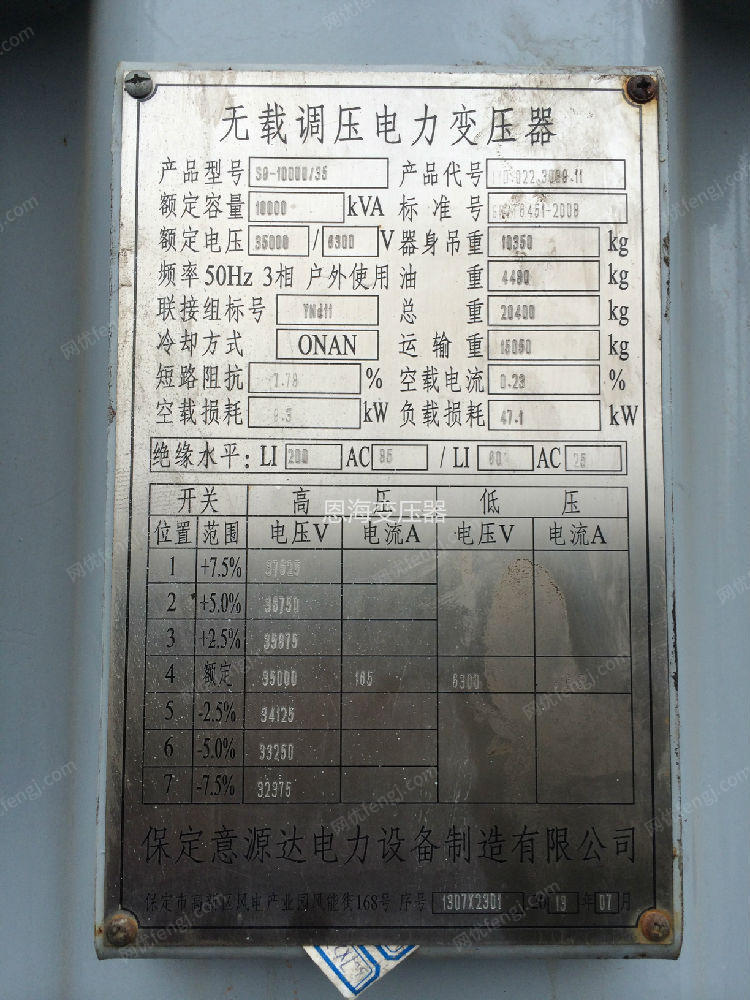 无载调压电力变压器
产品型号 S9-10000/35 产品代号
额定容量 10000 kVA 标准号 6451-2008
额定电压 35000 / 6300 V 器身吊重 10350 kg
频率 50Hz 3相 户外使用 油重 4490 kg
联接组标号 YNd11 总重 20400 kg
冷却方式 ONAN 运输重 15050 kg
短路阻抗 7.78 % 空载电流 0.23 %
空载损耗 kW 负载损耗 47.1 kW
绝缘水平: LI 200 AC 85 / LI 60 AC 25
开关 高压 低压
恩海变压器
位置 范围 电压V 电流A 电压V 电流A
1 +7.5% 37625
2 +5.0% 36750
3 +2.5% 35875
4 额定 35000 165 6300
5 -2.5% 34125
6 -5.0% 33250
7 -7.5% 32375
保定意源达电力设备制造有限公司
保定市高新区风电产业园风能街168号 序号 1307X2301 2013 年 07 月
网优fengj.com